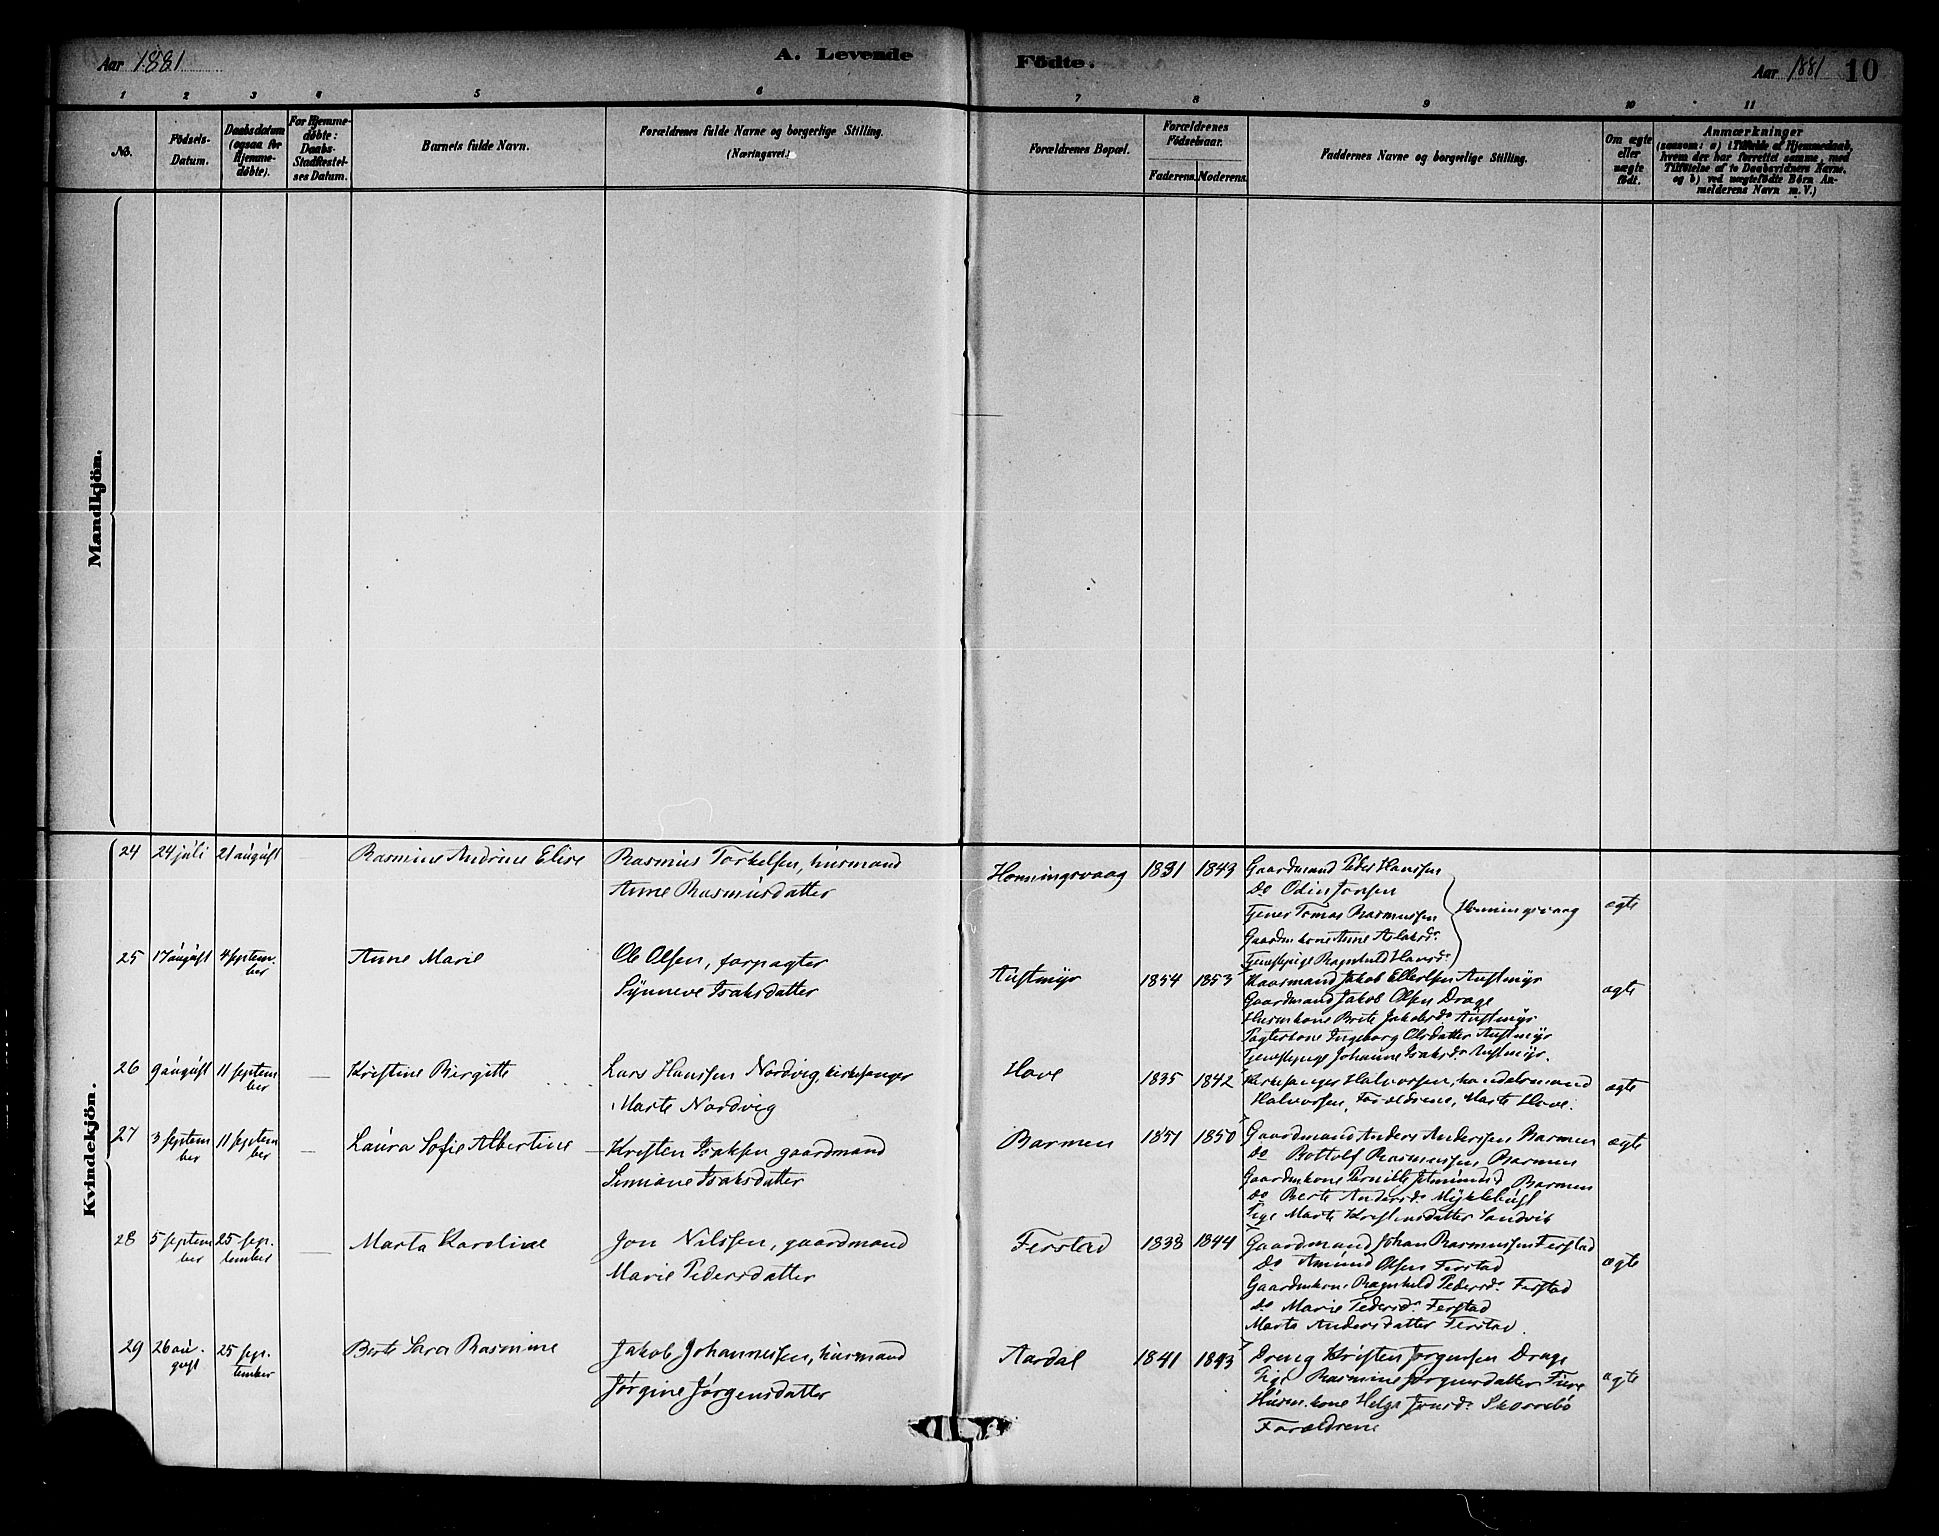 Aar 1881
A. Levende
Födte.
Aar 1881
10
1 2 3 4 5 6 7 8 9 10 11
No.
Födsels-
Datum.
Daabsdatum
(ogsaa for
Hjemme-
døbte).
For Hjemme-
døbte:
Daabs-
Stadfæstel-
ses Datum.
Barnets fulde Navn.
Forældrenes fulde Navne og borgerlige Stilling.
(Næringsvei.)
Forældrenes Bopæl.
Forældrenes
Födselsaar.
Faderens. Moderens.
Faddernes Navne og borgerlige Stilling.
Om ægte
eller
uægte
født.
Anmærkninger
(saasom: a) i Tilfælde af Hjemmedaab,
hvem der har forrettet samme, med
Tilföielse af to Daabsvidners Navne,
og b) ved uægtefödte Børn An-
melderens Navn m. V.)
Mandkjön.
Kvindekjön.
24 24 juli 21 august Rasmine Andrine Elise
Rasmus Torkelsen, husmand
Anne Rasmusdatter
Honningsvaag 1831 1843
Gaardmand Peder Hanssen
Do Odin Jonsen
Tjener Tomas Rasmussen
Honningsvaag
Gaardmkone Anne Aslaksdr
Tjenestepige Ragnhild Hansdr
ægte
25 17 august 4 septem-
ber
Anne Marie
Ole Olsen, forpagter
Synneve Isaksdatter
Austmyr 1854 1853
Huusmand Jakob Ellertsen Austmyr
Gaardmand Jakob Olsen Drage
Husmkone Brite Jakobsdr Austmyr
Pagterkone Ingeborg Olsdatter Austmyr
Tjenestepige Johanne Isaksdr Austmyr.
ægte
26 9 august 11 septem
ber
Kristine Birgitte
Lars Hanssen Nordvig, kirkesanger
Marte Nordvig
Hove 1835 1842
Kirkesanger Halvorssen, handelsmand
Halvorssen, Forældrene, Marte Hove.
ægte
27 3 septem
ber
11 septem
ber
Laura Sofie Albertine
Kristen Isaksen gaardmand
Simiane Isaksdatter
Barmen 1851 1850
Gaardmand Anders Anderssen Barmen
do Bottolf Rasmussen Barmen
Gaardmkone Pernille Jetmundsd Barmen
do Berte Andersdr Myklebust
Pige Marte Kristensdatter Sandvik
ægte
28 5 septem
ber
25 sep-
tember
Marta Karoline
Jon Nilssen, gaardmand
Marie Pedersdatter
Ferstad 1838 1844
Gaardmand Johan Rasmussen Ferstad
Do Amund Olsen Ferstad
Gaardmkone Ragnhild Pedersdr Ferstad
do Marie Pedersdr Ferstad
Marta Andersdatter Ferstad.
ægte
29 26 au-
gust
25 sep-
tember
Berte Sara Rasmine
Jakob Johannessen, husmand
Jørgine Jørgensdatter
Aardal 1841 1843
Dreng Kristen Jørgensen Drage
Pige Rasmine Jørgensdatter Fure
Husmkone Helga Jonsdr Skorrebø
Forældrene
ægte